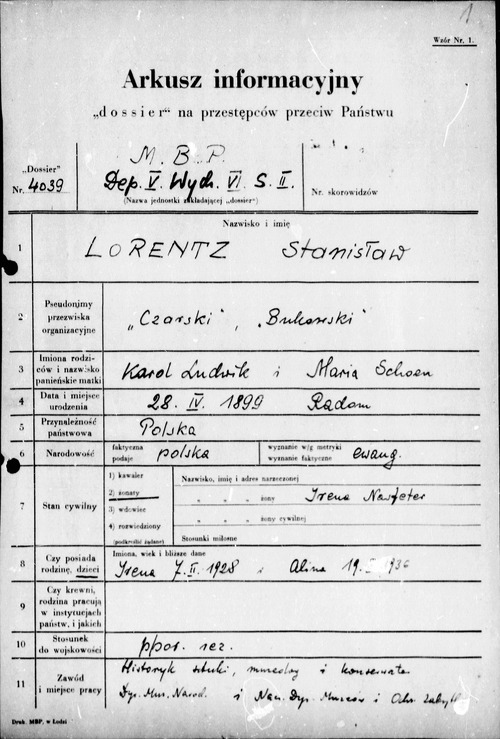 1.
Wzór Nr. 1.
Arkusz informacyjny
„dossier“ na przestępców przeciw Państwu
M. B. P.
„Dossier”
Nr. 4039
Dep. V. Wydz. VI. S. II.
(Nazwa jednostki zakładającej „dossier“)
Nr. skorowidzów
1
Nazwisko i imię
LORENTZ Stanisław
2
Pseudonimy
przezwiska
organizacyjne
„Czarski“, „Bukowski“
3
Imiona rodzi-
ców i nazwisko
panieńskie matki
Karol Ludwik i Maria Schoen
4
Data i miejsce
urodzenia
28. IV. 1899 Radom
5
Przynależność
państwowa
Polska
6
Narodowość
faktyczna
podaje
polska
wyznanie w/g metryki
wyznanie faktyczne
ewang.
7
Stan cywilny
1) kawaler
2) żonaty
3) wdowiec
4) rozwiedziony
(podkreślić żądane)
Nazwisko, imię i adres narzeczonej
„ „ „ żony Irena
„ „ „ żony cywilnej
Stosunki miłosne
8
Czy posiada
rodzinę, dzieci
Imiona, wiek i bliższe dane
Irena 7. II. 1928 i Alina 19. 1936
9
Czy krewni,
rodzina pracują
w instytucjach
państw, i jakich
10
Stosunek
do wojskowości
ppor. rez.
11
Zawód
i miejsce pracy
Historyk sztuki, muzeolog i konserwator
Dyr. Muz. Narod. i Nacz. Dyr. Muzeów i Ochr. Zabytk
Druk. MBP. w Łodzi